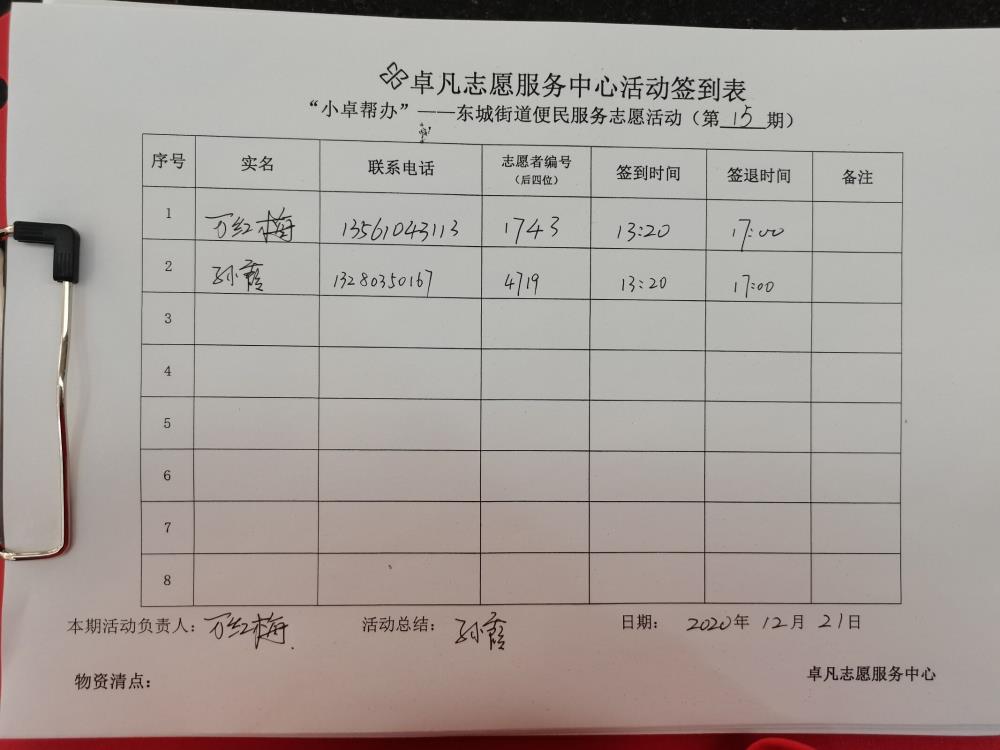 卓凡志愿服务中心活动签到表
“小卓帮办”——东城街道便民服务志愿活动（第 15 期）
序号 实名 联系电话 志愿者编号（后四位） 签到时间 签退时间 备注
1 万红梅 13561043113 1743 13:20 17:00
2 孙霞 13280350167 4719 13:20 17:00
3
4
5
6
7
8
本期活动负责人：万红梅 活动总结：孙霞 日期：2020年 12月 21日
物资清点：
卓凡志愿服务中心